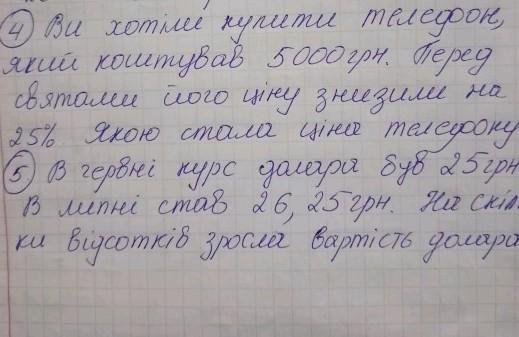 ④ Ви хотіли купити телефон,
який коштував 5000грн. Перед
святами його ціну знизили на
25% Якою стала ціна телефону
⑤ В червні курс долара був 25грн
В липні став 26,25грн. На скіль
ки відсотків зросла вартість долара